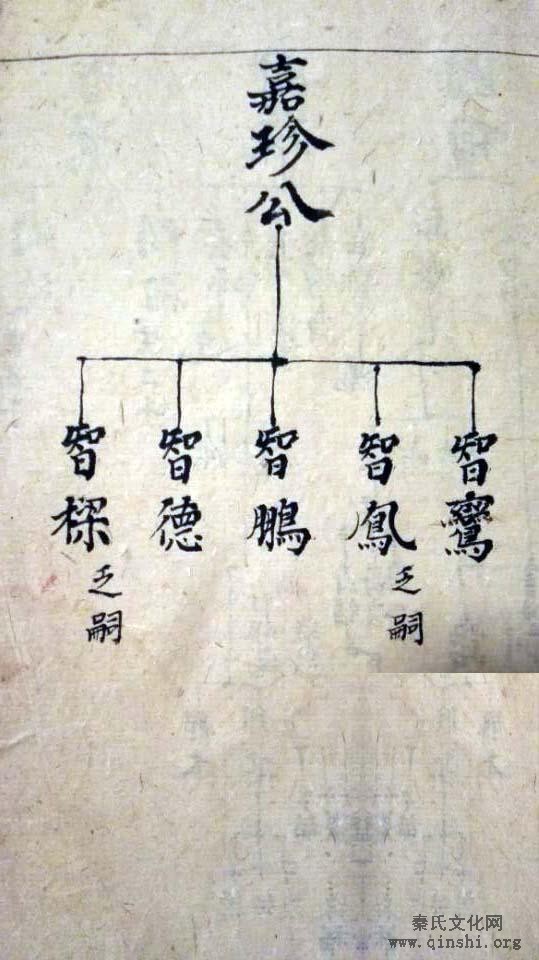 嘉珍公
智鸞
智鳳
乏嗣
智鵬
智德
智樑
乏嗣
秦氏文化网
www.qinshi.org